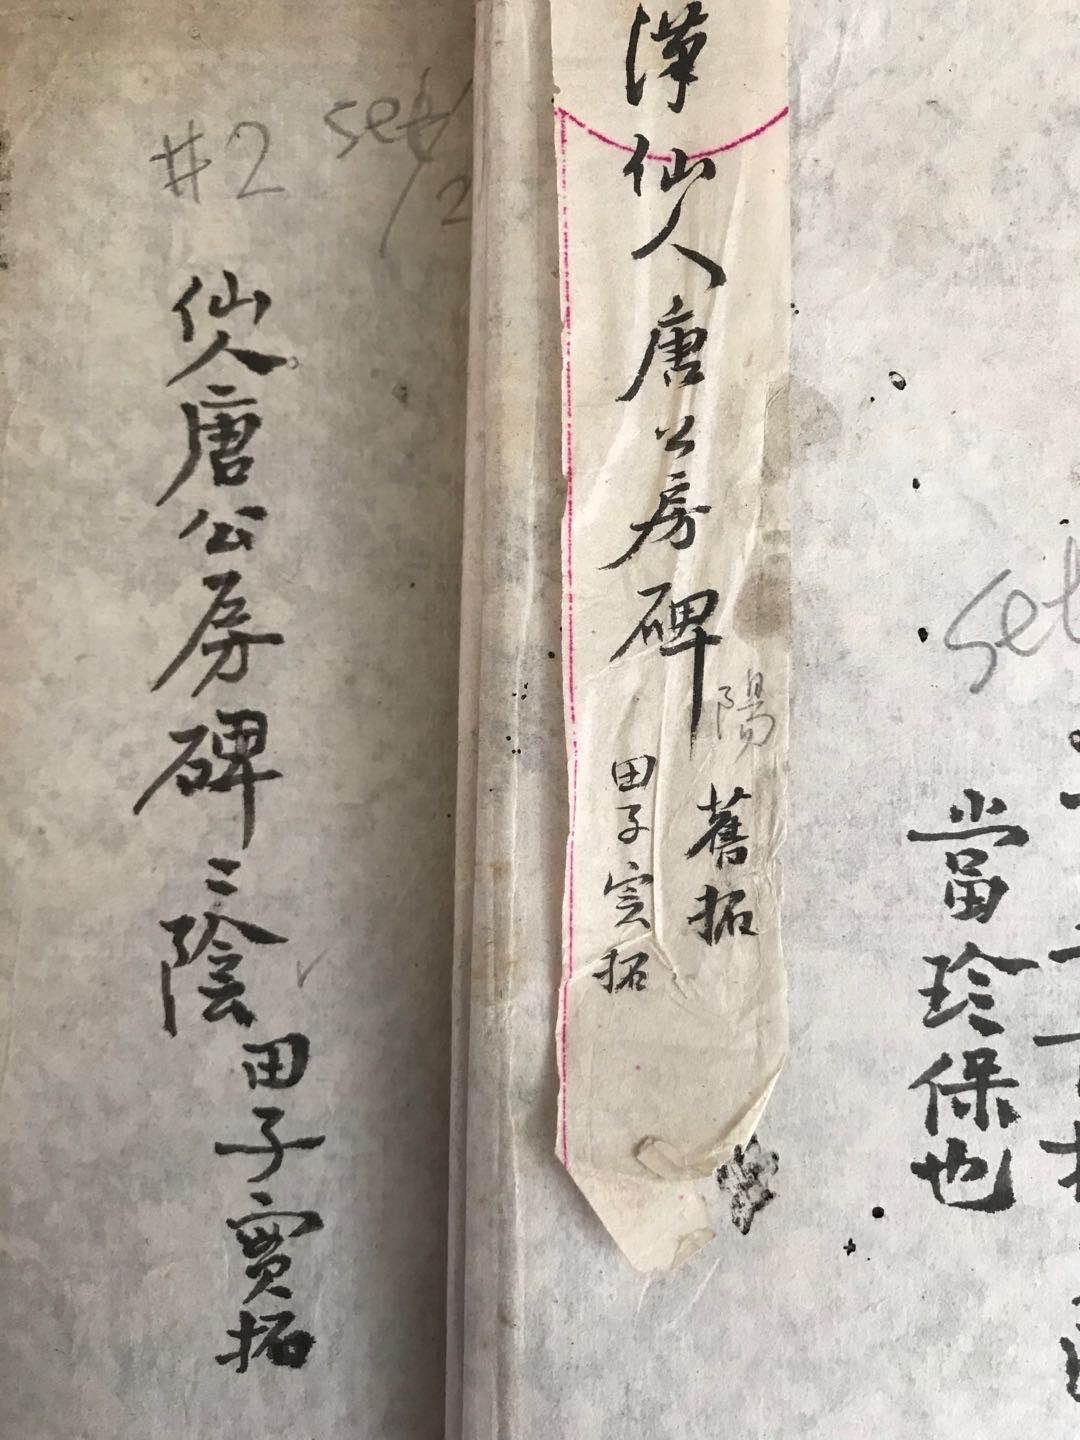 #2 set/2
仙人唐公房碑二陰
田子實拓
漢仙人唐公房碑
陽
舊拓
田子实拓
set
當珍保也